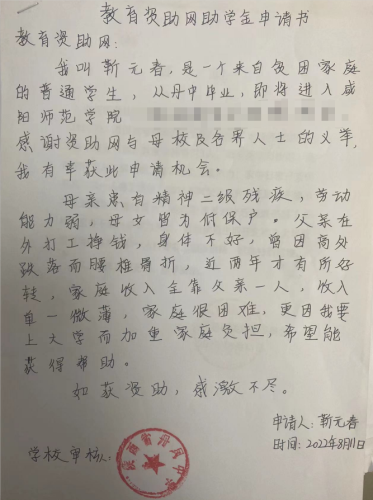 教育资助网助学金申请书
教育资助网:
我叫靳元春,是一个来自贫困家庭
的普通学生,从丹中毕业,即将进入咸
阳师范学院
感谢资助网与母校及各界人士的义举,
我有幸获此申请机会。
母亲患有精神二级残疾,劳动
能力弱,母女皆为低保户。父亲在
外打工挣钱,身体不好,曾因高处
跌落而腰椎骨折,近两年才有所好
转,家庭收入全靠父亲一人,收入
单一微薄,家庭很困难,更因我要
上大学而加重家庭负担,希望能
获得帮助。
如获资助,感激不尽。
申请人:靳元春
时间:2022年8月11日
学校审核:
陕西省丹凤中学